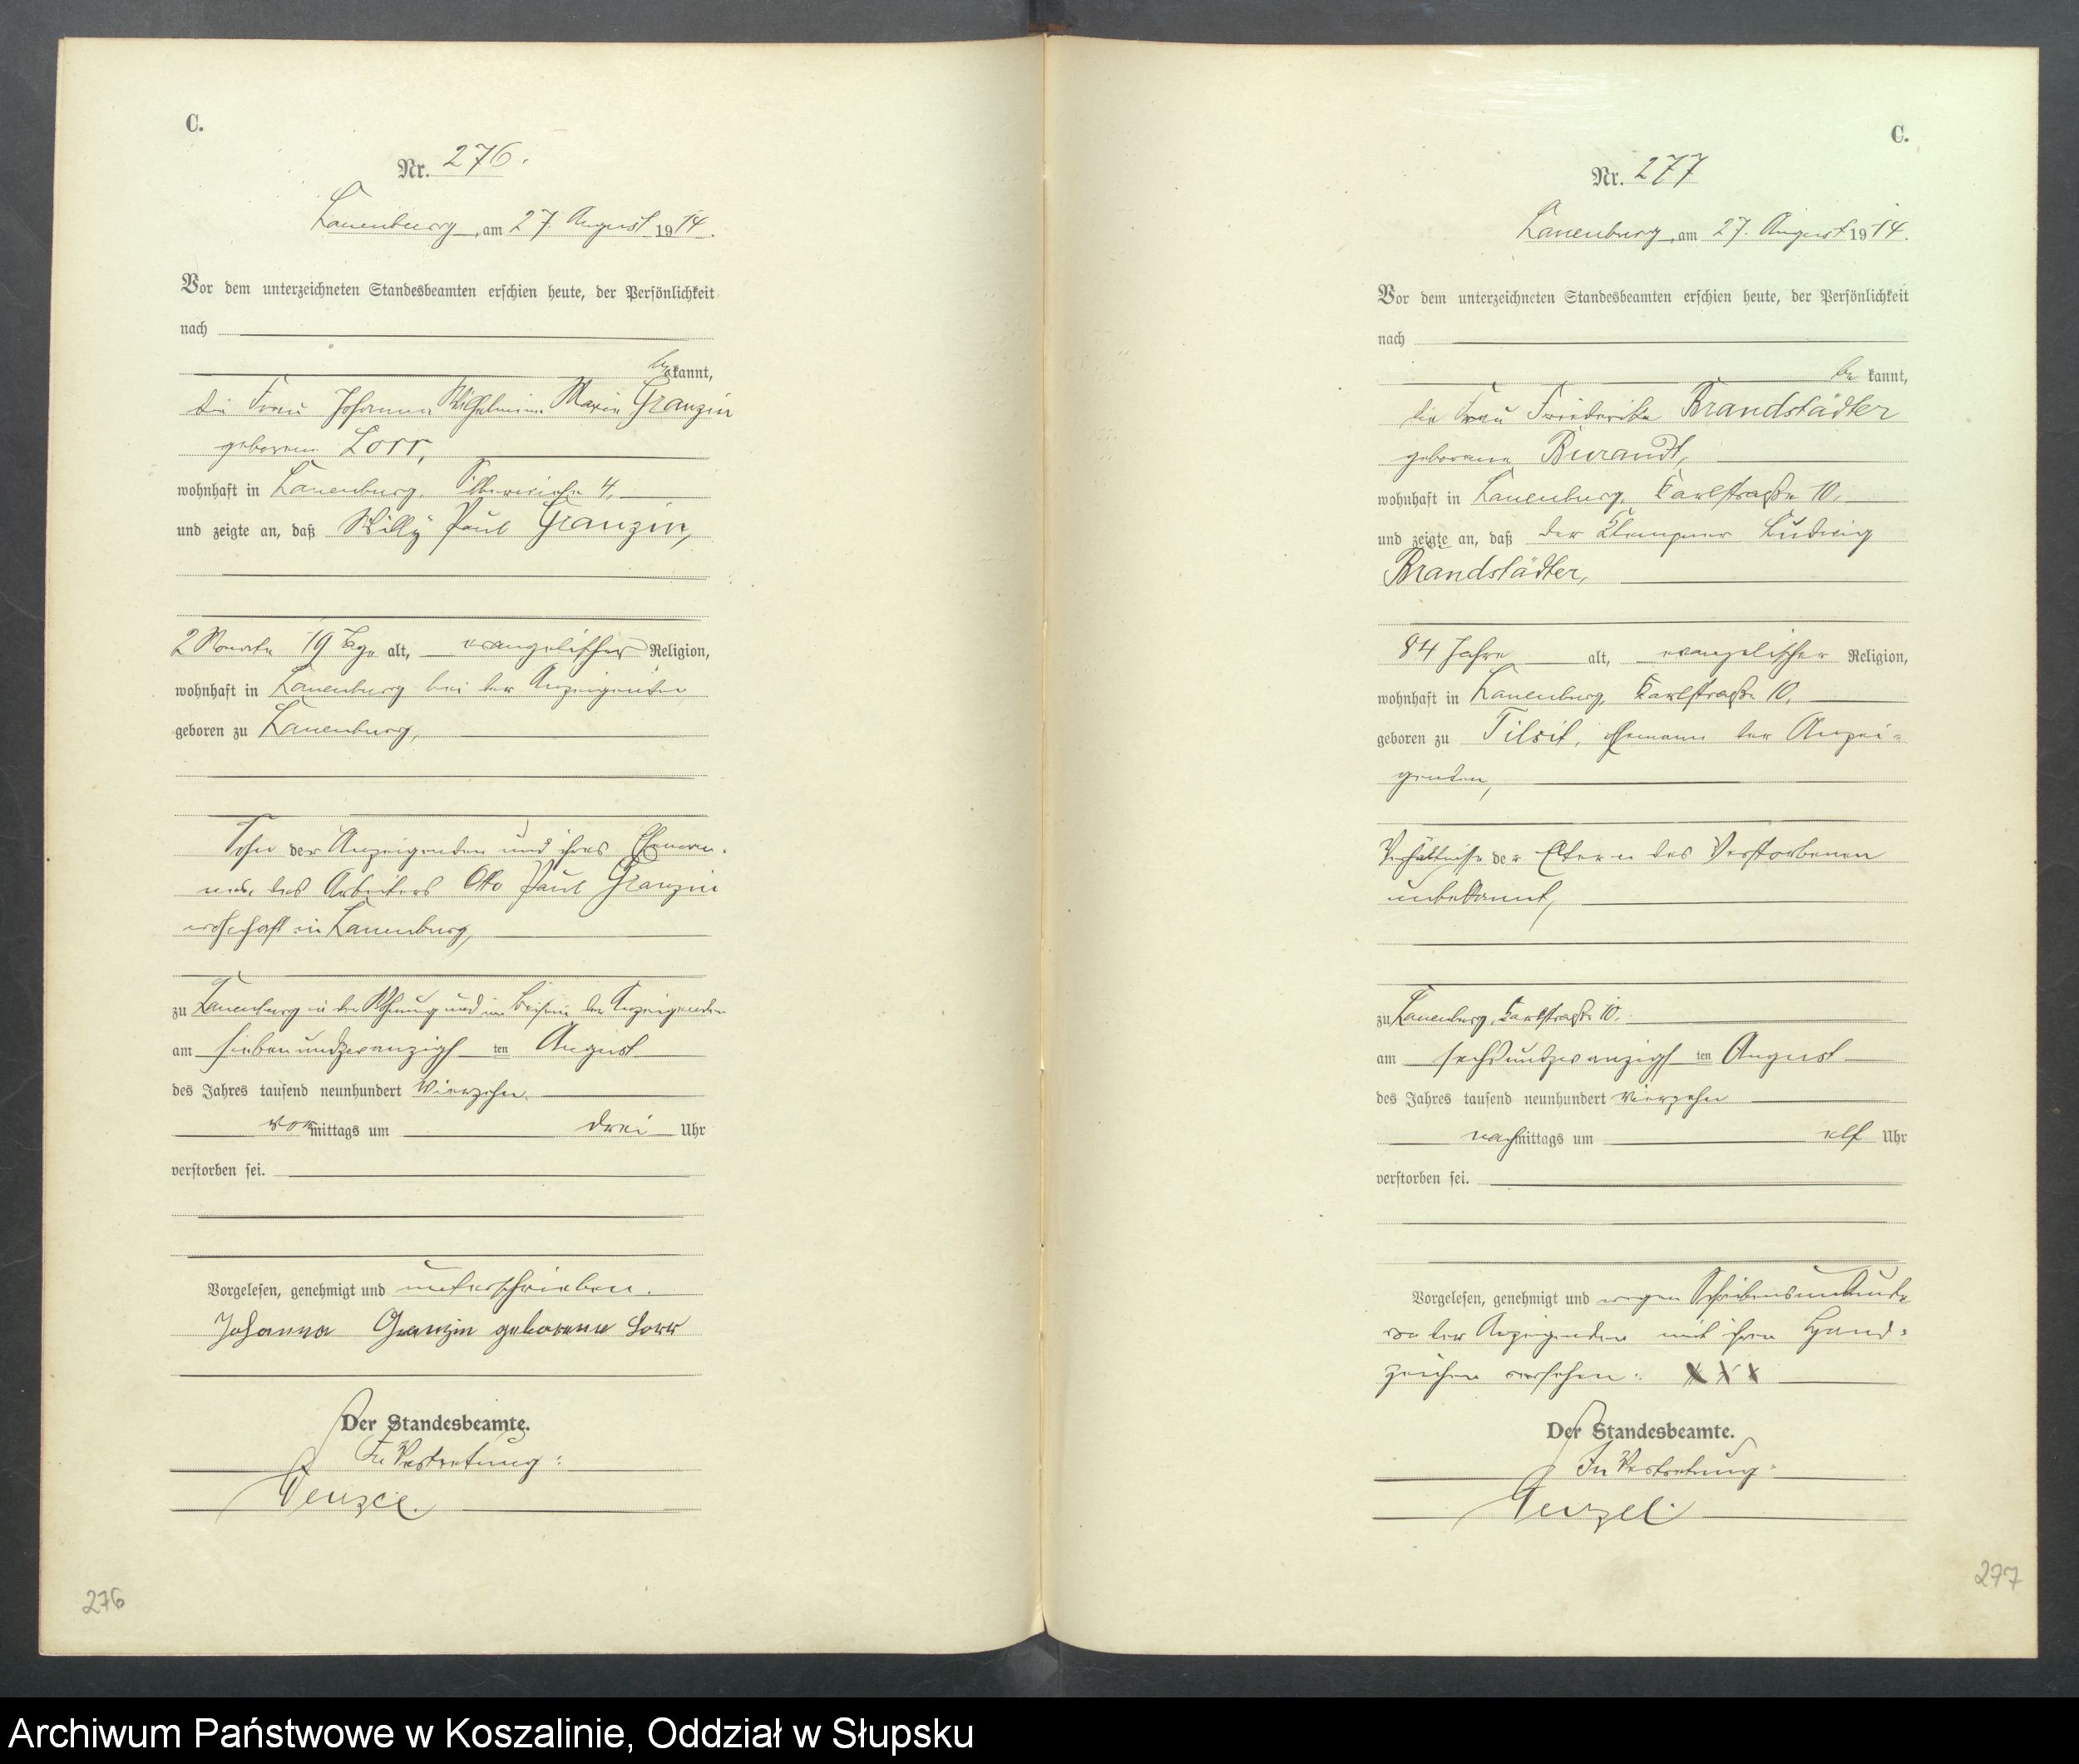 C.
Nr. 276.
Lauenburg, am 27. August 1914.
Vor dem unterzeichneten Standesbeamten erschien heute, der Persönlichkeit
nach
bekannt,
die Frau Johanna Wilhelmine Marie Granzin
geborene Lorr,
wohnhaft in Lauenburg, 4,
und zeigte an, daß Willy Paul Granzin,
2 Monate 19 Tage alt, evangelischer Religion,
wohnhaft in Lauenburg bei der Anzeigenden
geboren zu Lauenburg,
Sohn der Anzeigenden und ihres Eheman-
nes, des Arbeiters Otto Paul Granzin
wohnhaft in Lauenburg,
zu Lauenburg in der Wohnung und im Beisein der Anzeigenden
am siebenundzwanzigsten August
des Jahres tausend neunhundert vierzehn
vormittags um drei Uhr
verstorben sei.
Vorgelesen, genehmigt und unterschrieben.
Johanna Granzin geborene Lorr
Der Standesbeamte.
In Vertretung:
Wenzel.
276
C.
Nr. 277
Lauenburg, am 27. August 1914.
Vor dem unterzeichneten Standesbeamten erschien heute, der Persönlichkeit
nach
bekannt,
die Frau Friederike Brandstädter
geborene Burandt,
wohnhaft in Lauenburg, Karlstraße 10,
und zeigte an, daß der Klempner Ludwig
Brandstädter,
84 Jahre alt, evangelischer Religion,
wohnhaft in Lauenburg, Karlstraße 10,
geboren zu Tilsit, Ehemann der Anzei-
genden,
Verhältnisse der Eltern des Verstorbenen
unbekannt,
zu Lauenburg, Karlstraße 10,
am sechsundzwanzigsten August
des Jahres tausend neunhundert vierzehn
nachmittags um elf Uhr
verstorben sei.
Vorgelesen, genehmigt und wegen Schreibensunkunde
von der Anzeigenden mit ihrem Hand-
zeichen versehen: XXX
Der Standesbeamte.
In Vertretung:
Wenzel.
277
Archiwum Państwowe w Koszalinie, Oddział w Słupsku